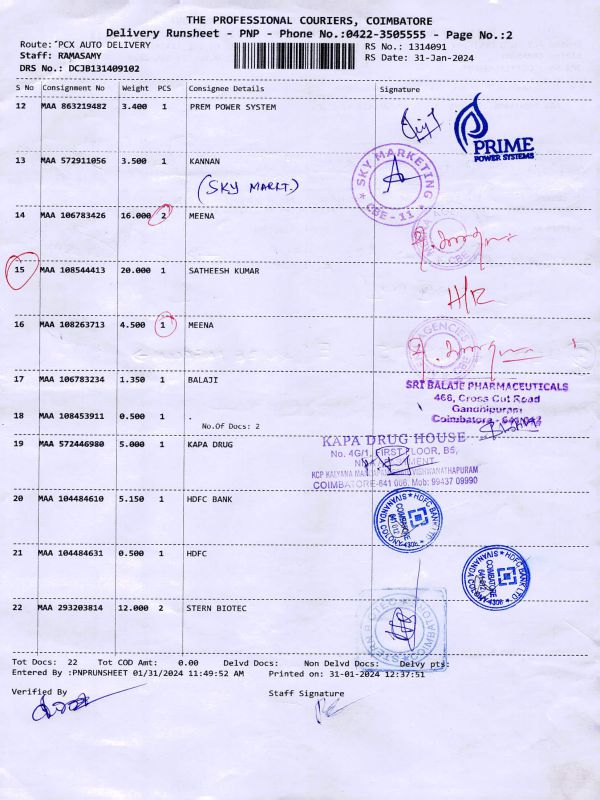 THE PROFESSIONAL COURIERS, COIMBATORE
Delivery Runsheet - PNP - Phone No.:0422-3505555 - Page No.:2
Route: PCX AUTO DELIVERY
RS No.: 1314091
Staff: RAMASAMY
RS Date: 31-Jan-2024
DRS No.: DCJB131409102
S No Consignment No Weight PCS Consignee Details Signature
12 MAA 863219482 3.400 1 PREM POWER SYSTEM
PRIME
POWER SYSTEMS
13 MAA 572911056 3.500 1 KANNAN
(SKY MARKT.)
SKY MARKETING
CBE - 11
14 MAA 106783426 16.000 2 MEENA
CBE
15 MAA 108544413 20.000 1 SATHEESH KUMAR
H/R
16 MAA 108263713 4.500 1 MEENA
AGENCIES
17 MAA 106783234 1.350 1 BALAJI
SRI BALAJE PHARMACEUTICALS
466, Cross Cut Road
Gandhipuram
Coimbatore - 641 012
18 MAA 108453911 0.500 1
No.Of Docs: 2
19 MAA 572446980 5.000 1 KAPA DRUG
KAPA DRUG HOUSE
No. 4G/1, FIRST FLOOR, B5,
KCP KALYANA VISHWANATHAPURAM
COIMBATORE-641 006, Mob: 99437 09990
20 MAA 104484610 5.150 1 HDFC BANK
HDFC BANK LTD
COIMBATORE
641 012
SIVANANDA COLONY-4306
21 MAA 104484631 0.500 1 HDFC
HDFC BANK LTD
COIMBATORE
641 012
SIVANANDA COLONY-4306
22 MAA 293203814 12.000 2 STERN BIOTEC
Tot Docs: 22 Tot COD Amt: 0.00 Delvd Docs: Non Delvd Docs: Delvy pts:
Entered By :PNPRUNSHEET 01/31/2024 11:49:52 AM Printed on: 31-01-2024 12:37:51
Verified By
Staff Signature